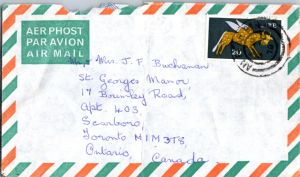 AERPHOST
PAR AVION
AIR MAIL
ÉIRE
20
Mrs. J. F. Buchanan
St. Georges Manor
17 Brimley Road,
Apt. 403
Scarboro,
Toronto M1M 3T8,
Ontario, Canada.